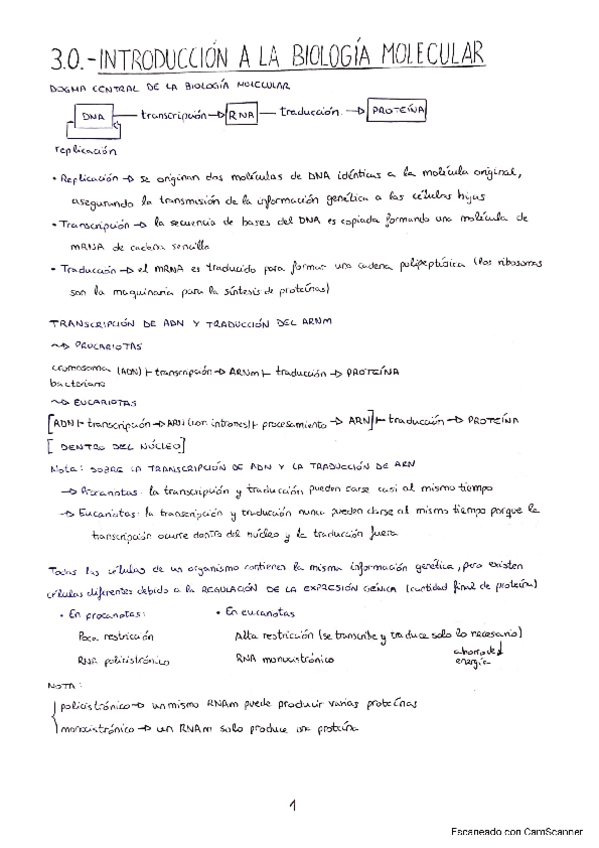 3.0.- INTRODUCCIÓN A LA BIOLOGÍA MOLECULAR
DOGMA CENTRAL DE LA BIOLOGÍA MOLECULAR
DNA transcripción → RNA traducción → PROTEÍNA
replicación
• Replicación → se originan dos moléculas de DNA idénticas a la molécula original,
asegurando la transmisión de la información genética a las células hijas
• Transcripción → la secuencia de bases del DNA es copiada formando una molécula de
mRNA de cadena sencilla
• Traducción → el mRNA es traducido para formar una cadena polipeptídica (los ribosomas
son la maquinaria para la síntesis de proteínas)
TRANSCRIPCIÓN DE ADN Y TRADUCCIÓN DEL ARNM
~> PROCARIOTAS
cromosoma (ADN) ⊢ transcripción → ARNm ⊢ traducción → PROTEÍNA
bacteriano
~> EUCARIOTAS
[ADN ⊢ transcripción → ARN (con intrones) ⊢ procesamiento → ARN] ⊢ traducción → PROTEÍNA
[ DENTRO DEL NÚCLEO]
Nota: SOBRE LA TRANSCRIPCIÓN DE ADN Y LA TRADUCCIÓN DE ARN
→ Procariotas: la transcripción y traducción pueden darse casi al mismo tiempo
→ Eucariotas: la transcripción y traducción nunca pueden darse al mismo tiempo porque la
transcripción ocurre dentro del núcleo y la traducción fuera
Todas las células de un organismo contienen la misma información genética, pero existen
células diferentes debido a la REGULACIÓN DE LA EXPRESIÓN GÉNICA (cantidad final de proteína)
• En procariotas: • En eucariotas
Poca restricción Alta restricción (se transcribe y traduce solo lo necesario)
RNA policistrónico RNA monocistrónico ahorro de
energía
NOTA:
policistrónico → un mismo RNAm puede producir varias proteínas
monocistrónico → un RNAm solo produce una proteína
1
Escaneado con CamScanner